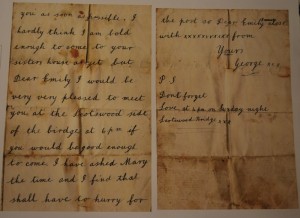 you as soon as possible, I
hardly think I am bold
enough to come to your
sisters house as yet but
Dear Emily I would be
very very pleased to meet
you at the Scotswood side
of the birdge at 6 pm if
you would be good enough
to come, I have asked Mary
the time and I find that
shall have to hurry for
the post so Dear Emily
with xxxxxxxxx from
Yours
George xxx
P S
Dont forget
Love, at 6 pm on Sunday night
Scotswood Bridge xxx